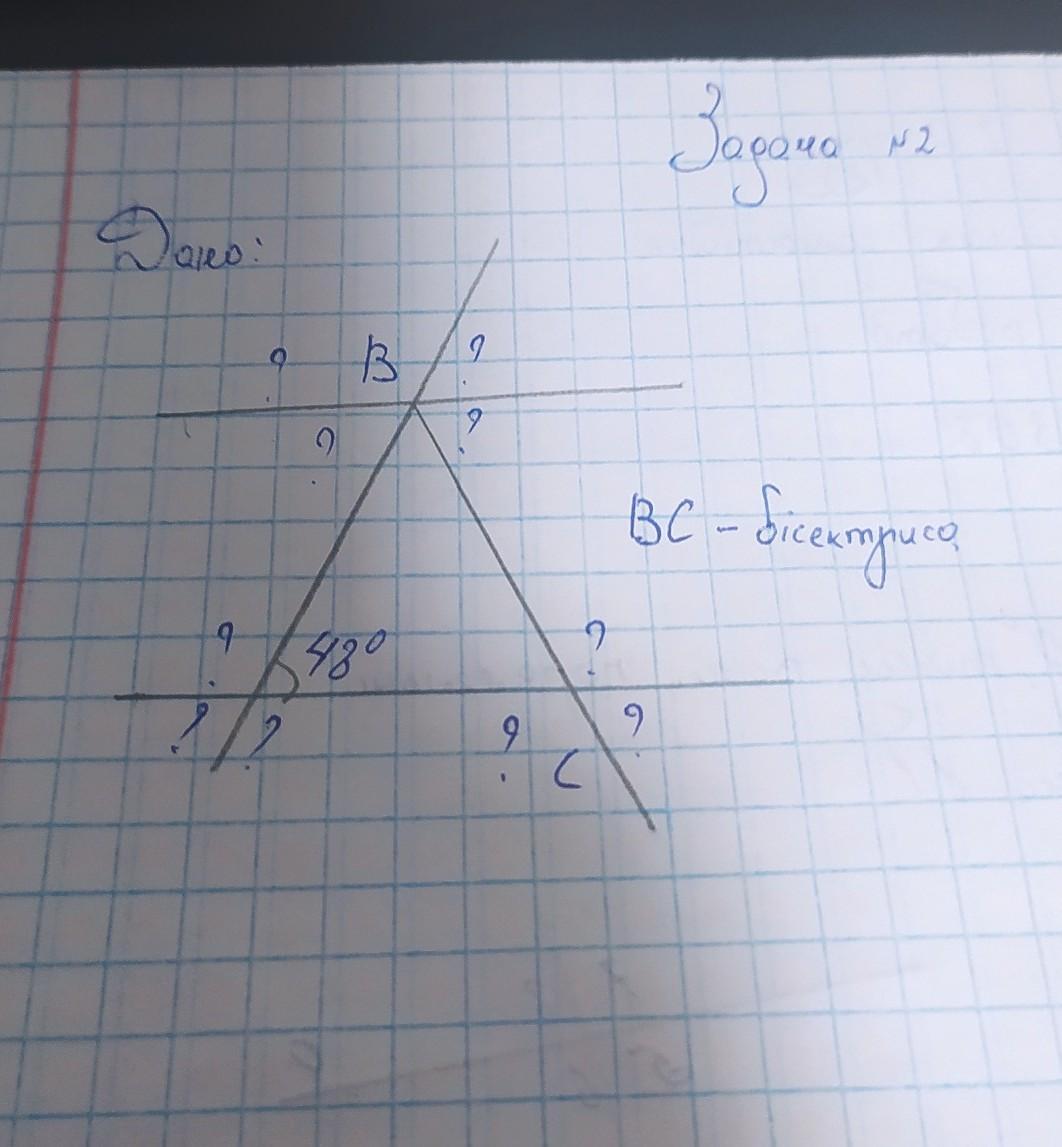 Задача №2
Дано:
? B ?
? ?
BC - бісектриса
? 48° ?
? ? ? ?
C